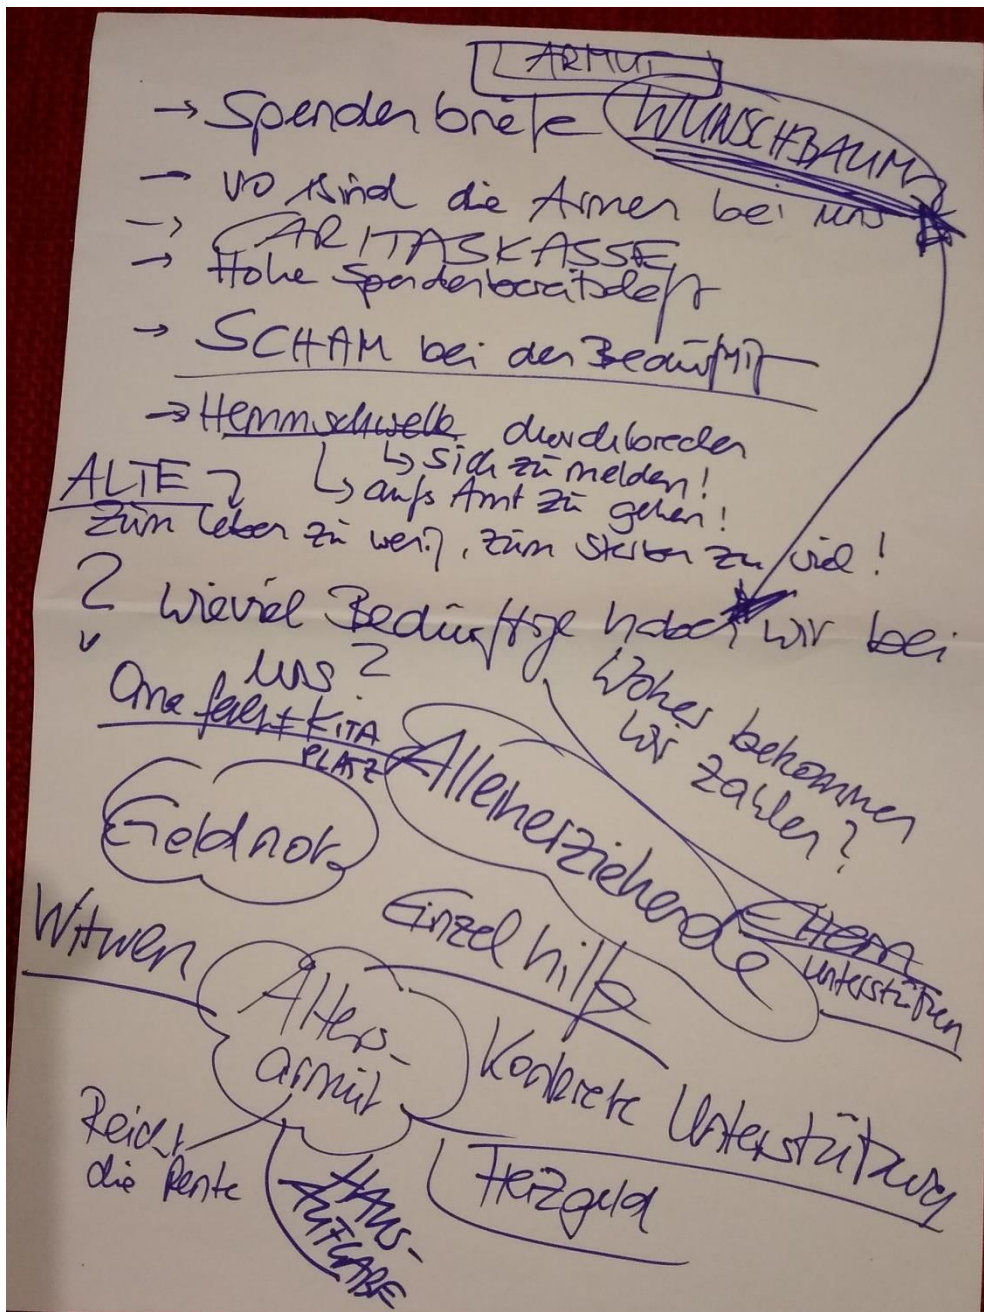 ARMUT
→ Spendenbriefe WUNSCHBAUM
→ wo sind die Armen bei uns
→ CARITASKASSE
→ Hohe Spendenbereitschaft
→ SCHAM bei der
→ Hemmschwelle durchbrechen
↳ sich zu melden!
↳ aufs Amt zu gehen!
ALTE
zum Leben zu wenig, zum Sterben zu viel!
? Wieviel Bedürftige haben wir bei
uns?
Woher bekommen
wir Zahlen?
Oma fehlt ≠ KITA
PLATZ
Alleinerziehende
Geldnot
Eltern
unterstützen
Witwen
Einzelhilfe
Alters-
armut
Konkrete Unterstützung
Reicht
die Rente
Heizgeld
HAUS-
AUFGABE